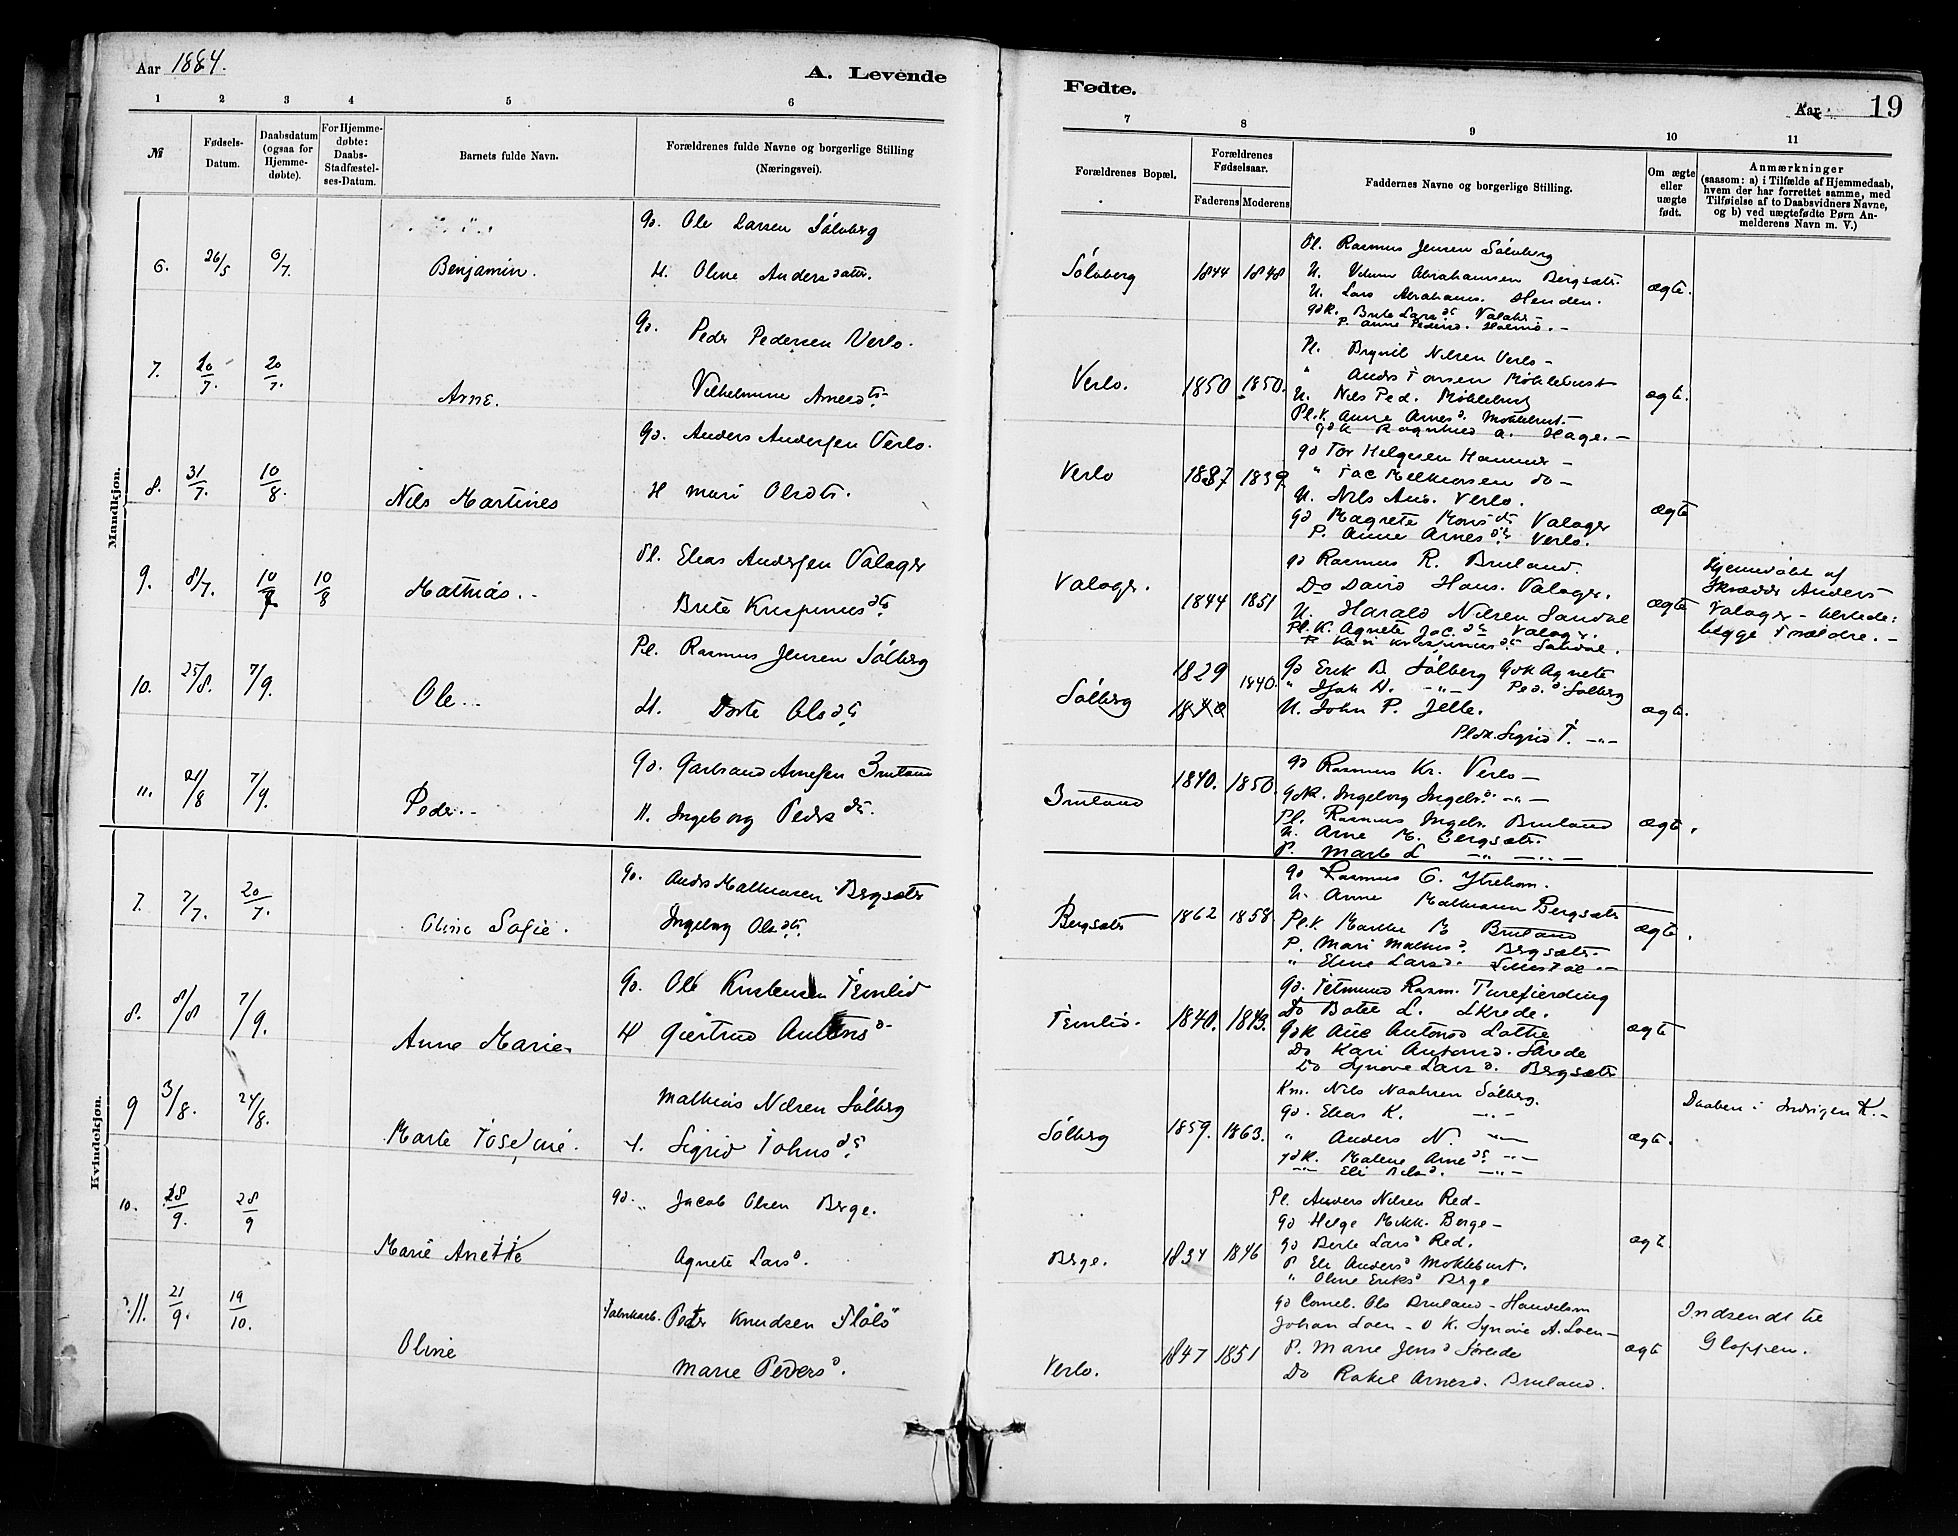 Aar 1884.
A. Levende
Fødte.
Aar
19
1 2 3 4 5 6
7 8 9 10 11
№
Fødsels-Datum.
Daabsdatum (ogsaa for Hjemme-døbte).
For Hjemme-døbte: Daabs-Stadfæstel-ses-Datum.
Barnets fulde Navn.
Forældrenes fulde Navne og borgerlige Stilling (Næringsvei).
Forældrenes Bopæl.
Forældrenes Fødselsaar.
Faderens Moderens
Faddernes Navne og borgerlige Stilling.
Om ægte eller uægte født.
Anmærkninger
(saasom: a) i Tilfælde af Hjemmedaab, hvem der har forrettet samme, med Tilføielse af to Daabsvidners Navne, og b) ved uægtefødte Børn An-melderens Navn m. V.)
Mandkjøn.
6. 26/5 6/7. Benjamin.
Gd. Ole Larsen Sølvberg
H. Oline Andersdatter.
Sølvberg 1844 1848
Pl. Rasmus Jensen Sølvberg
U. Abrahamsen Bergsætr.
U. Lars Abrahams. Henden.
ægte.
7. 20/7. 20/7. Arne.
Gd. Peder Pedersen Verlo.
Vilhelmine Arnesdtr.
Verlo. 1850 1850.
Pl. Brynil Nilsen Verlo -
" Anders Møklebust
U. Nils Ped. Møklebust
Pl.K. Anne Arnesd. Moklebust.
Gdk Ragnhild A. Hage. -
ægte.
8. 31/7. 10/8. Nils Martines
Gd. Anders Andersen Verlo.
H Mari Olsdtr.
Verlo 1837 1839
Gd Tor Helgesen Hammer -
" Jac Melkiorsen do -
U. Nils And. Verlo.
Gd Magrete Monsdtr Valager
P. Anne Arnesdtr Verlo.
ægte
9. 8/7. 10/8 10/8 Mathias. -
Pl. Elias Andersen Valager
Brite Krispinusdtr
Valager. 1844 1851
Gd Rasmus R. Bruland.
Do David Hans. Valager.
U. Harald Nilsen Sandal
Pl.K. Agnete Jac.dtr Valager.
P Kari Krispinusdtr Sandal.
ægte
Hjemmedøbt af
Skrædder Anders
Valager - tilstede:
begge Forældre. -
10. 25/8. 7/9. Ole..
Pl. Rasmus Jensen Sølberg
H. Dorte Olsdtr
Sølberg 1829 1840.
Gd Erik B Sølberg Gdk Agnete
Ped.d. Sølberg
U. John P. Jelle.
Pldk. Sigrid T. -"-
ægte.
11. 21/8 7/9. Peder. -
Gd. Garbrand Arnesen Bruland
H. Ingeborg Pedersdtr.
Bruland 1840. 1850.
Gd Rasmus Kr. Verlo -
Gdk. Ingeborg Ingebr.d. -"-
Pl. Rasmus Ingebr. Bruland
U. Arne M. Bergsætr.
P. Marte L -"-
ægte.
Kvindekjøn.
7. 7/7. 20/7. Oline Sofie.
Gd. Anders Mathiasen Bergsætr
Ingeborg Olsdtr.
Bergsætr 1862 1858
Gd Rasmus G. Ytrehorn.
U. Arne Mathiasen Bergsætr
Pl.K. Marthe M Bruland
P. Mari Mathisd. Bergsætr.
" Eline Larsd.
ægte.
8. 8/8 7/9. Anne Marie
Gd. Ole Kristensen Temlid
H Gjertrud Antonsd.
Temlid. 1840. 1843.
Gd. Tetmund Rasm. Turefjerding
Do Botel L. Skrede.
Gdk Ane Antonsd Lothe
Do Kari Antonsd. Skrede
Do Synøve Larsd. Bergsætr
ægte
9 3/8. 24/8. Marte Josefine.
Mathias Nilsen Sølberg
H. Sigrid Johnsdtr.
Sølberg 1859. 1863.
Km. Nils Sølberg.
Gd. Elias K. -"-
" Anders N. -"-
Gdk. Malene Arnedtr -"-
-"- Eli Nilsd. -"-
ægte.
Daaben i Indvigen K. -
10. 28/9. 28/9 Marie Anette
Gd. Jacob Olsen Berge.
Agnete Larsd.
Berge. 1834 1846
Pl. Anders Nilsen Red -
Gd Helge Mikk. Berge -
Gd Berte Larsd Red.
P Eli Andersd Moklebust.
" Oline Eriksd Berge
ægt.
11. 21/9 19/10. Oline
Peder Knudsen Flölö
Marie Pedersd.
Verlo. 1847 1851
Gd Cornel. Ols Bruland - Handelsm
Johan Loen - U K. Synøve A. Loen -
P. Marie Jensd
Do Rakel Arnesd. Bruland.
ægte
Indsendt til
Gloppen.